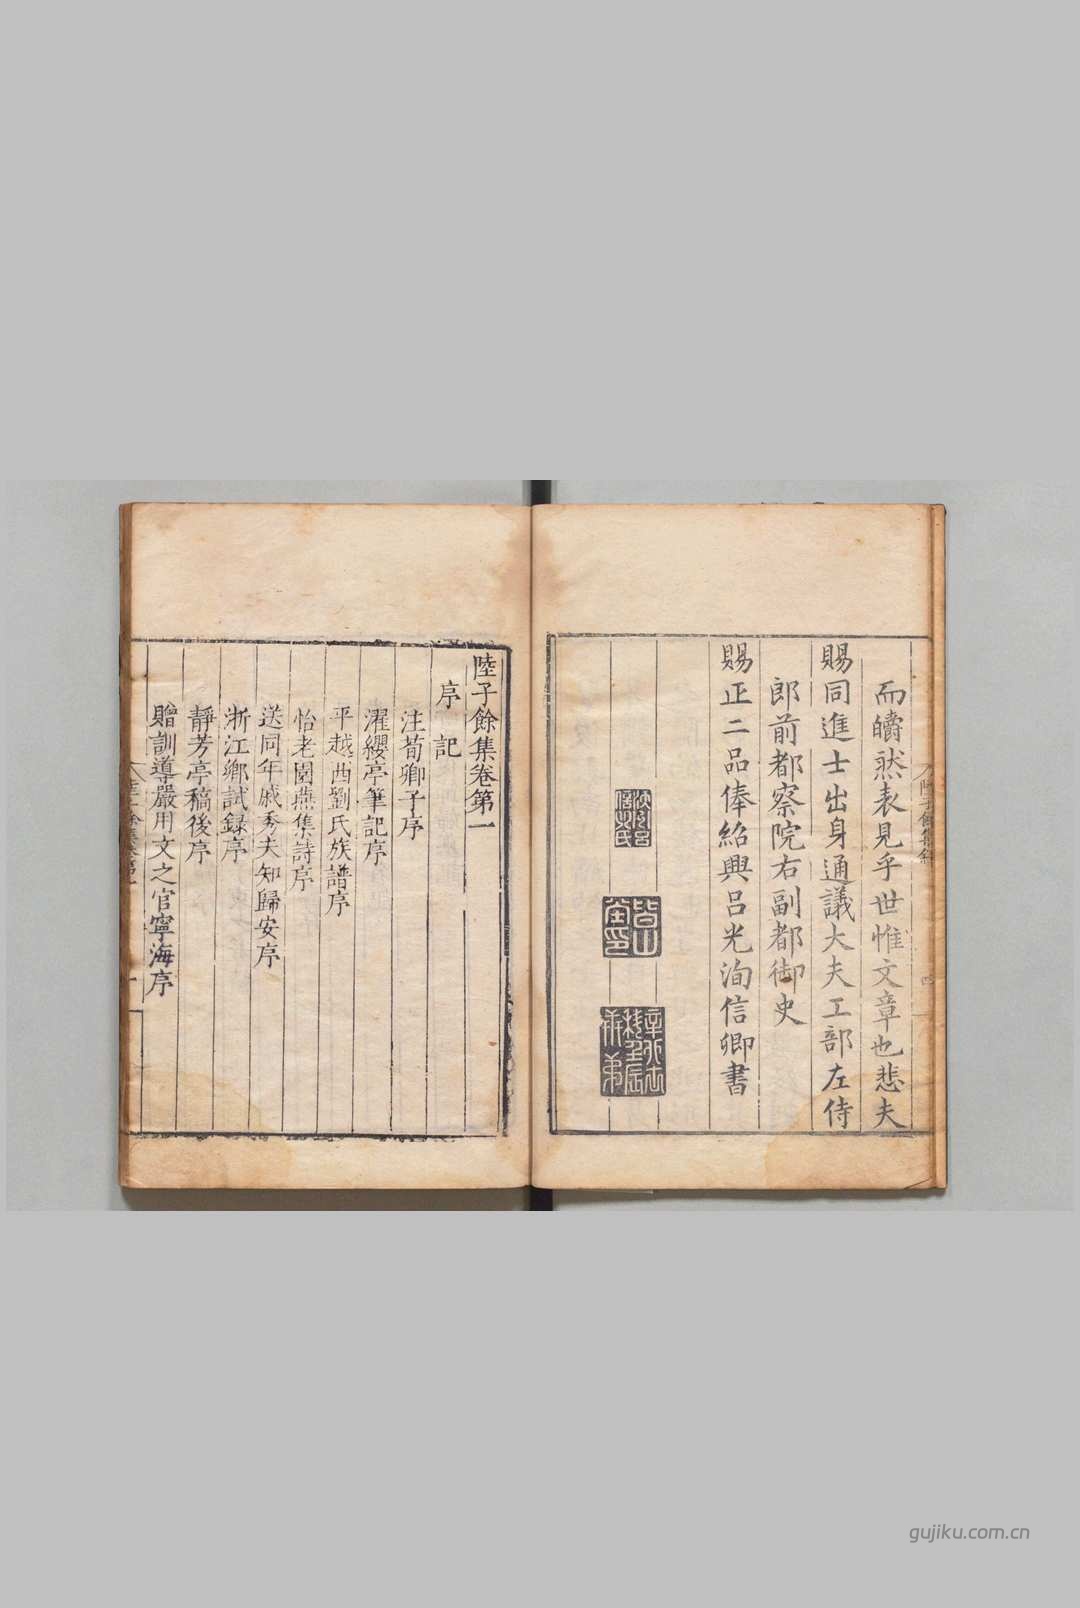 而皭然表見乎世惟文章也悲夫
賜同進士出身通議大夫工部左侍
郎前都察院右副都御史
賜正二品俸紹興呂光洵信卿書
陸子餘集卷第一
序記
注荀卿子序
濯纓亭筆記序
平越酋劉氏族譜序
怡老園燕集詩序
送同年戚秀夫知歸安序
浙江鄉試録序
靜芳亭稿後序
贈訓導嚴用文之官寧海序
gujiku.com.cn